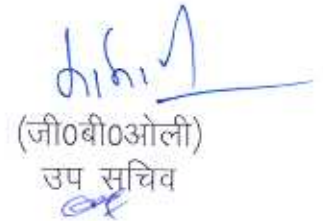 (जी0बी0ओली)
उप सचिव